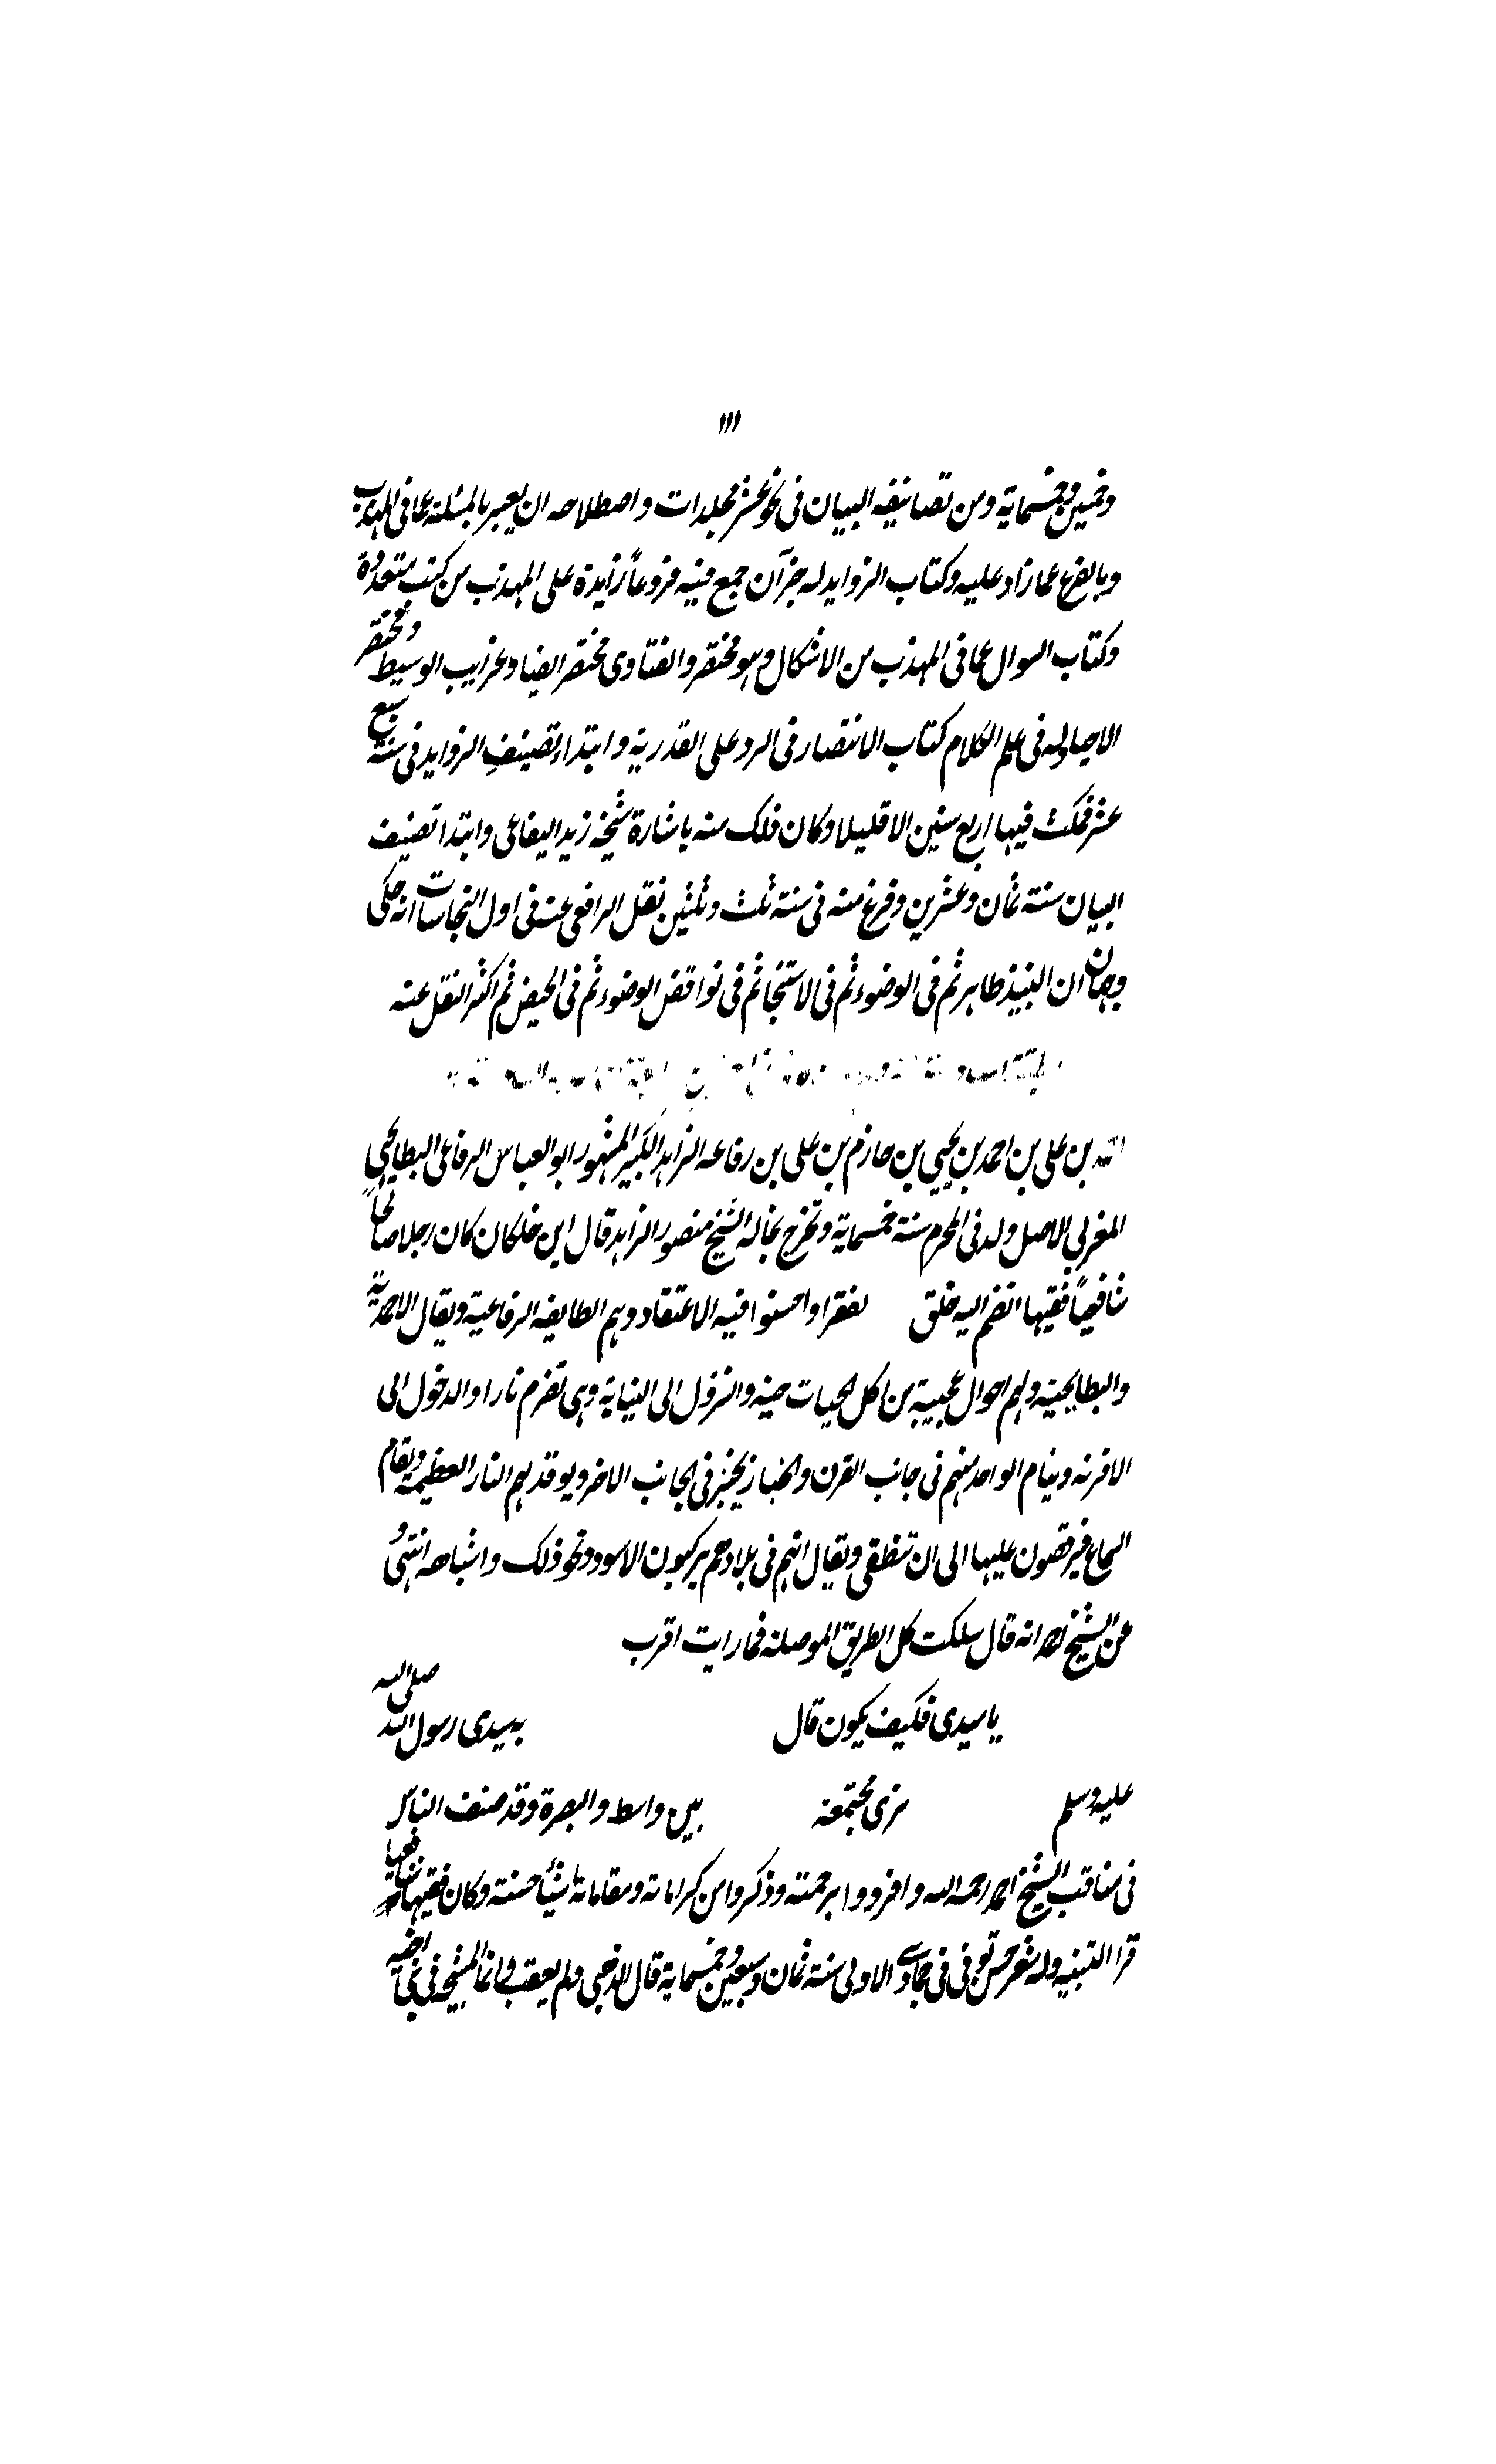 ١١١
وخمسين وخمسماية ومن تصانيفه البيان فى نحو عشر مجلدات واصطلاحه ان يعبر بالمسئلة عما فى المهذب
وبالفرع عما زاد عليه وكتاب الزوايد له جزآن جمع فيه فروعاً زايدة على المهذب من كتب متعددة
وكتاب السوال عما فى المهذب من الاشكال وهو مختصر والفتاوى مختصر ايضا وغرايب الوسيط ومختصر
الاحيا وله فى علم الكلام كتاب الانتصار فى الرد على القدرية وابتداء تصنيف الزوايد فى سنة سبع
عشر فمكث فيها اربع سنين الا قليلا وكان ذلك منه باشارة شيخه زيد اليفاعى وابتدا تصنيف
البيان سنة ثمان وعشرين وفرغ منه فى سنة ثلث وثلثين نقل الرافعى عنه فى اول النجاسات انه حكى
وجهان ان النبيذ طاهر ثم فى الوضوء ثم فى الاستنجا ثم فى نواقض الوضوء ثم فى الحيض ثم اكثر النقل عنه
بن على بن احمد بن يحيى بن حازم بن على بن رفاعه الزاهد الكبير المشهور ابو العباس الرفاعى البطايحى
المغربى الاصل ولد فى المحرم سنة خمسماية وتخرج بخاله الشيخ منصور الزاهد قال ابن خلكان كان رجلا صالحاً
شافعياً فقيها انضم اليه خلق لفقرا واحسنوا فيه الاعتقاد وهم الطايفه الرفاعية ويقال الاحمدية
والبطايحية ولهم احوال عجيبة من اكل الحيات حية والنزول الى النيانية وهى تضرم نارا والدخول الى
الافرنه وينام الواحد منهم فى جانب الفرن والخباز يخبز فى الجانب الاخر ويوقد لهم النار العظيمة ويقام
السماع فيرقصون عليها الى ان تنطفى ويقال انهم فى بلادهم يركبون الاسود ونحو ذلك واشباهه انتهى و
عن الشيخ احمد انه قال سلكت كل الطريق الموصلة فما رايت اقرب
يا سيدى فكيف يكون قال به سيدى رسول الله صلى الله
عليه وسلم نرى مجتمعة بين واسط والبصرة وقد صنف الناس
فى مناقب الشيخ احمد رحمه الله وافردوا برجمته وذكروا من كراماته ومقاماته شيأ حسنة وكان فقيها شافعيا
قرا التنبيه وله شعر حسن توفى فى جمادى الاولى سنة ثمان وسبعين وخمسماية قال الذهبى ولم يعقب وانما المشيخه فى بنى اخيه